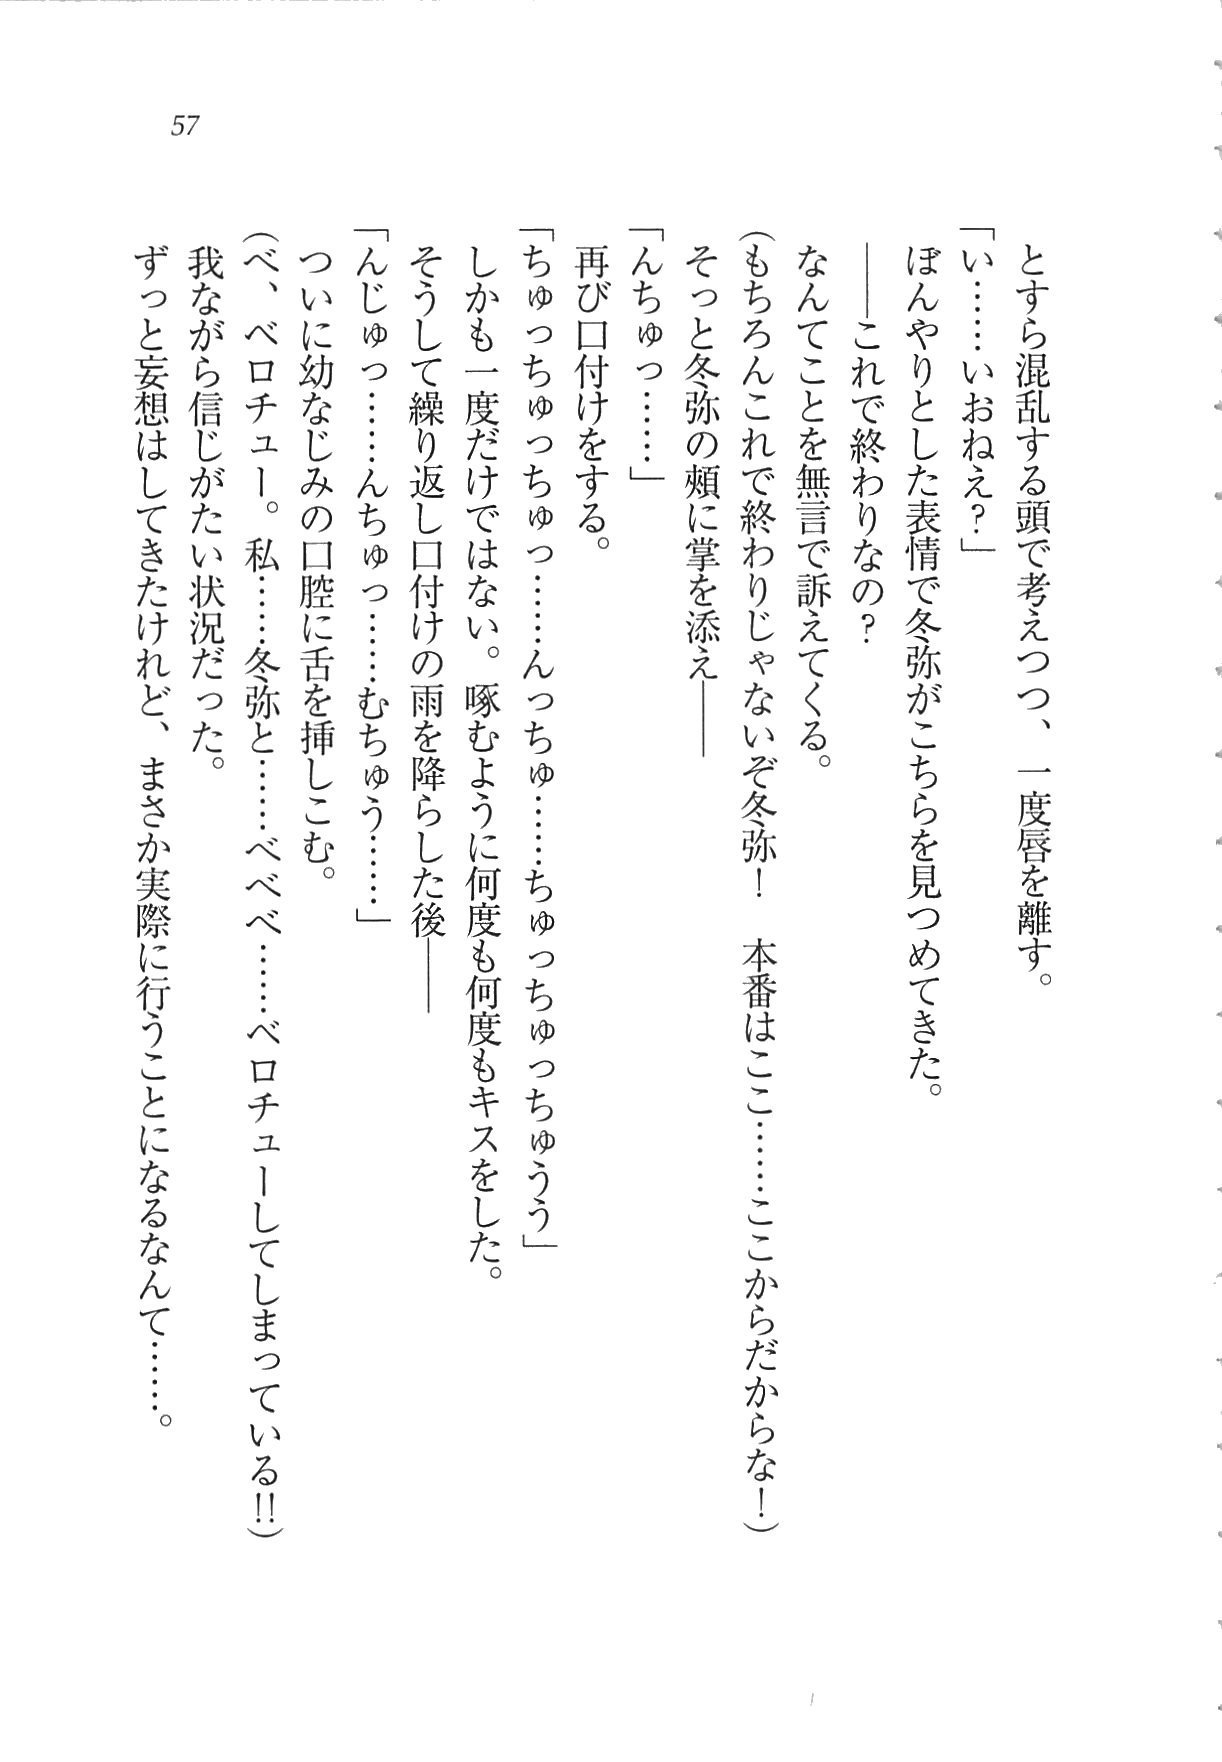 57
とすら混乱する頭で考えつつ、一度唇を離す。
「い……いおねえ？」
ぼんやりとした表情で冬弥がこちらを見つめてきた。
――これで終わりなの？
なんてことを無言で訴えてくる。
（もちろんこれで終わりじゃないぞ冬弥！　本番はここ……ここからだからな！）
そっと冬弥の頬に掌を添え――
「んちゅっ……」
再び口付けをする。
「ちゅっちゅっちゅっ……んっちゅ……ちゅっちゅっちゅうう」
しかも一度だけではない。啄むように何度も何度もキスをした。
そうして繰り返し口付けの雨を降らした後――
「んじゅっ……んちゅっ……むちゅう……」
ついに幼なじみの口腔に舌を挿しこむ。
（べ、ベロチュー。私……冬弥と……べべべ……ベロチューしてしまっている!!）
我ながら信じがたい状況だった。
ずっと妄想はしてきたけれど、まさか実際に行うことになるなんて……。